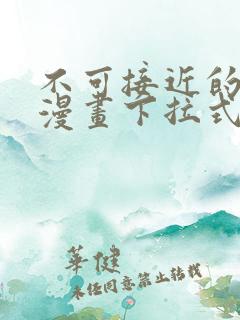 不可接近的
漫畫下拉式
華健
未经同意禁止转载